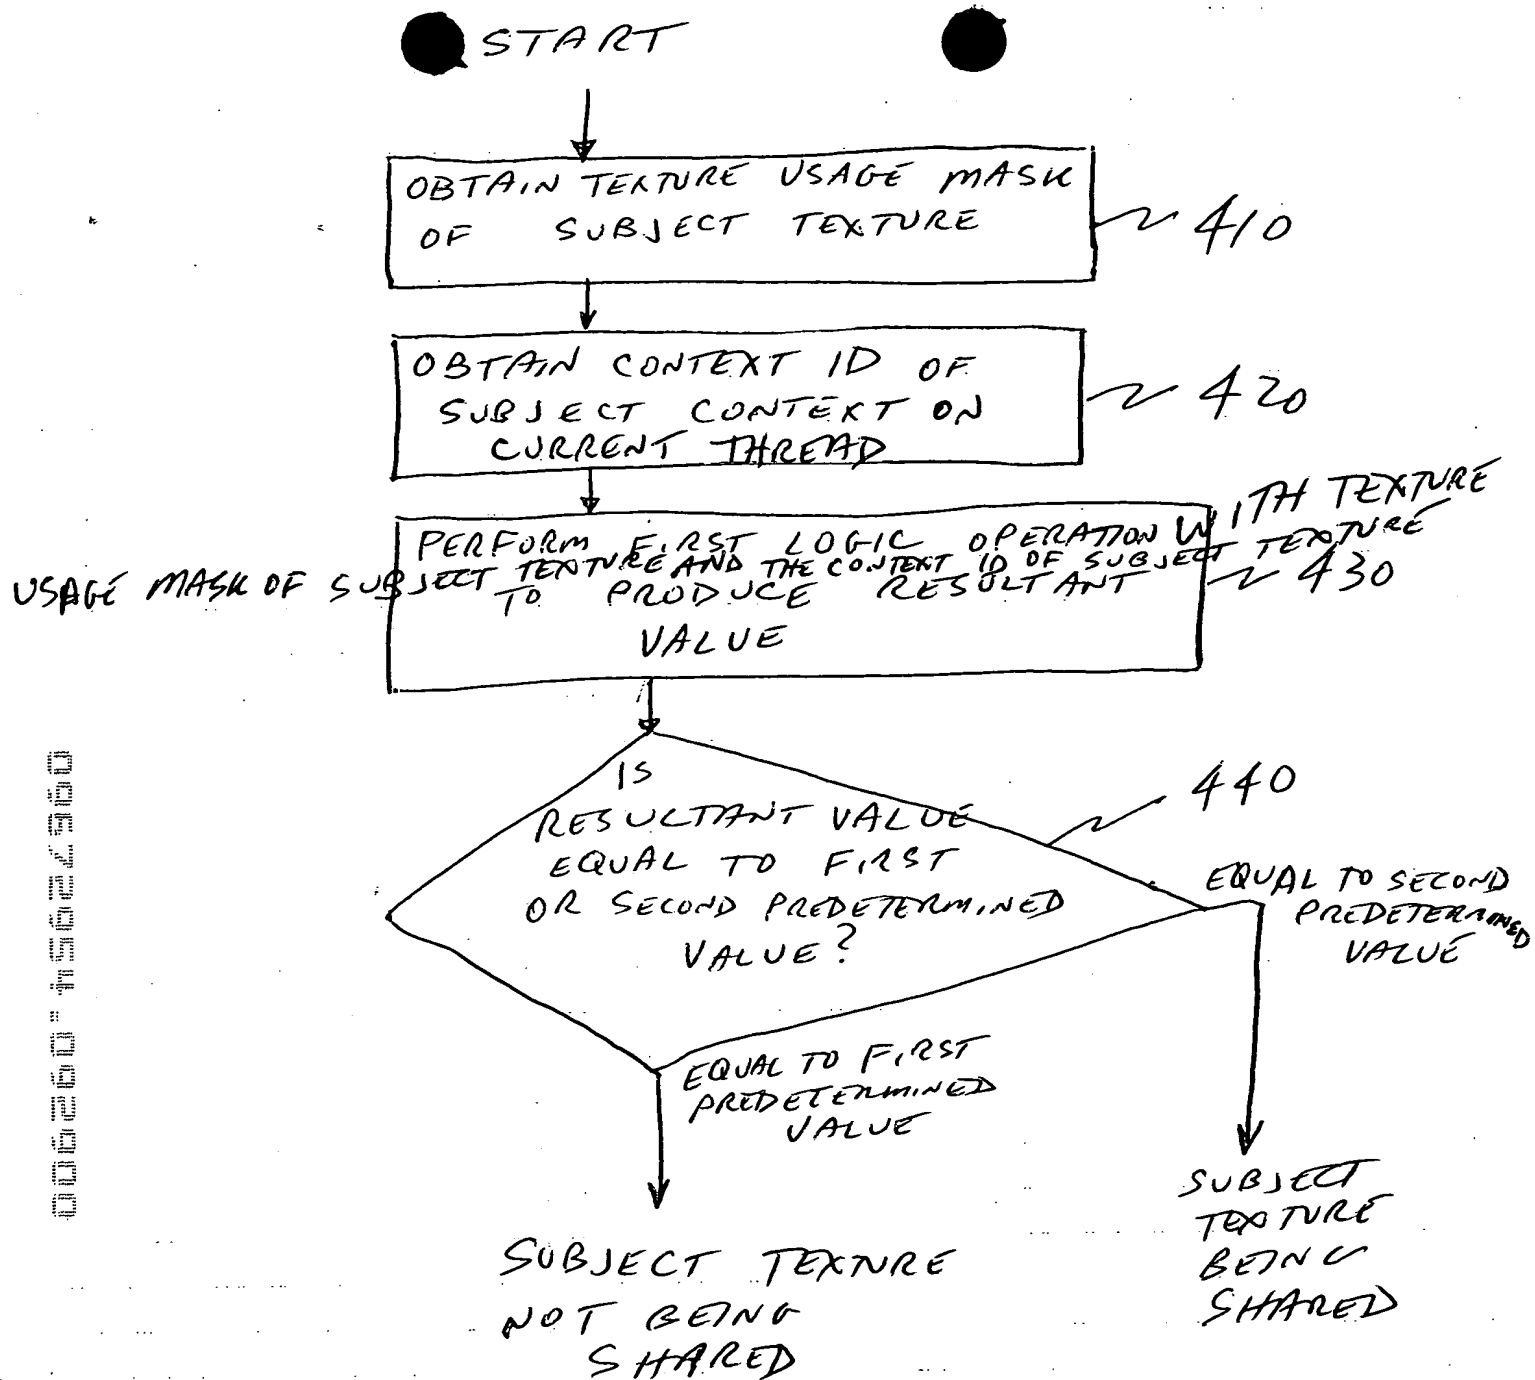 START
OBTAIN TEXTURE USAGE MASK
OF SUBJECT TEXTURE
410
OBTAIN CONTEXT ID OF
SUBJECT CONTEXT ON
CURRENT THREAD
420
PERFORM FIRST LOGIC OPERATION WITH TEXTURE
USAGE MASK OF SUBJECT TEXTURE AND THE CONTEXT ID OF SUBJECT TEXTURE
TO PRODUCE RESULTANT
VALUE
430
IS
RESULTANT VALUE
EQUAL TO FIRST
OR SECOND PREDETERMINED
VALUE?
440
EQUAL TO SECOND
PREDETERMINED
VALUE
EQUAL TO FIRST
PREDETERMINED
VALUE
SUBJECT
TEXTURE
BEING
SHARED
SUBJECT TEXTURE
NOT BEING
SHARED
09672954.092900